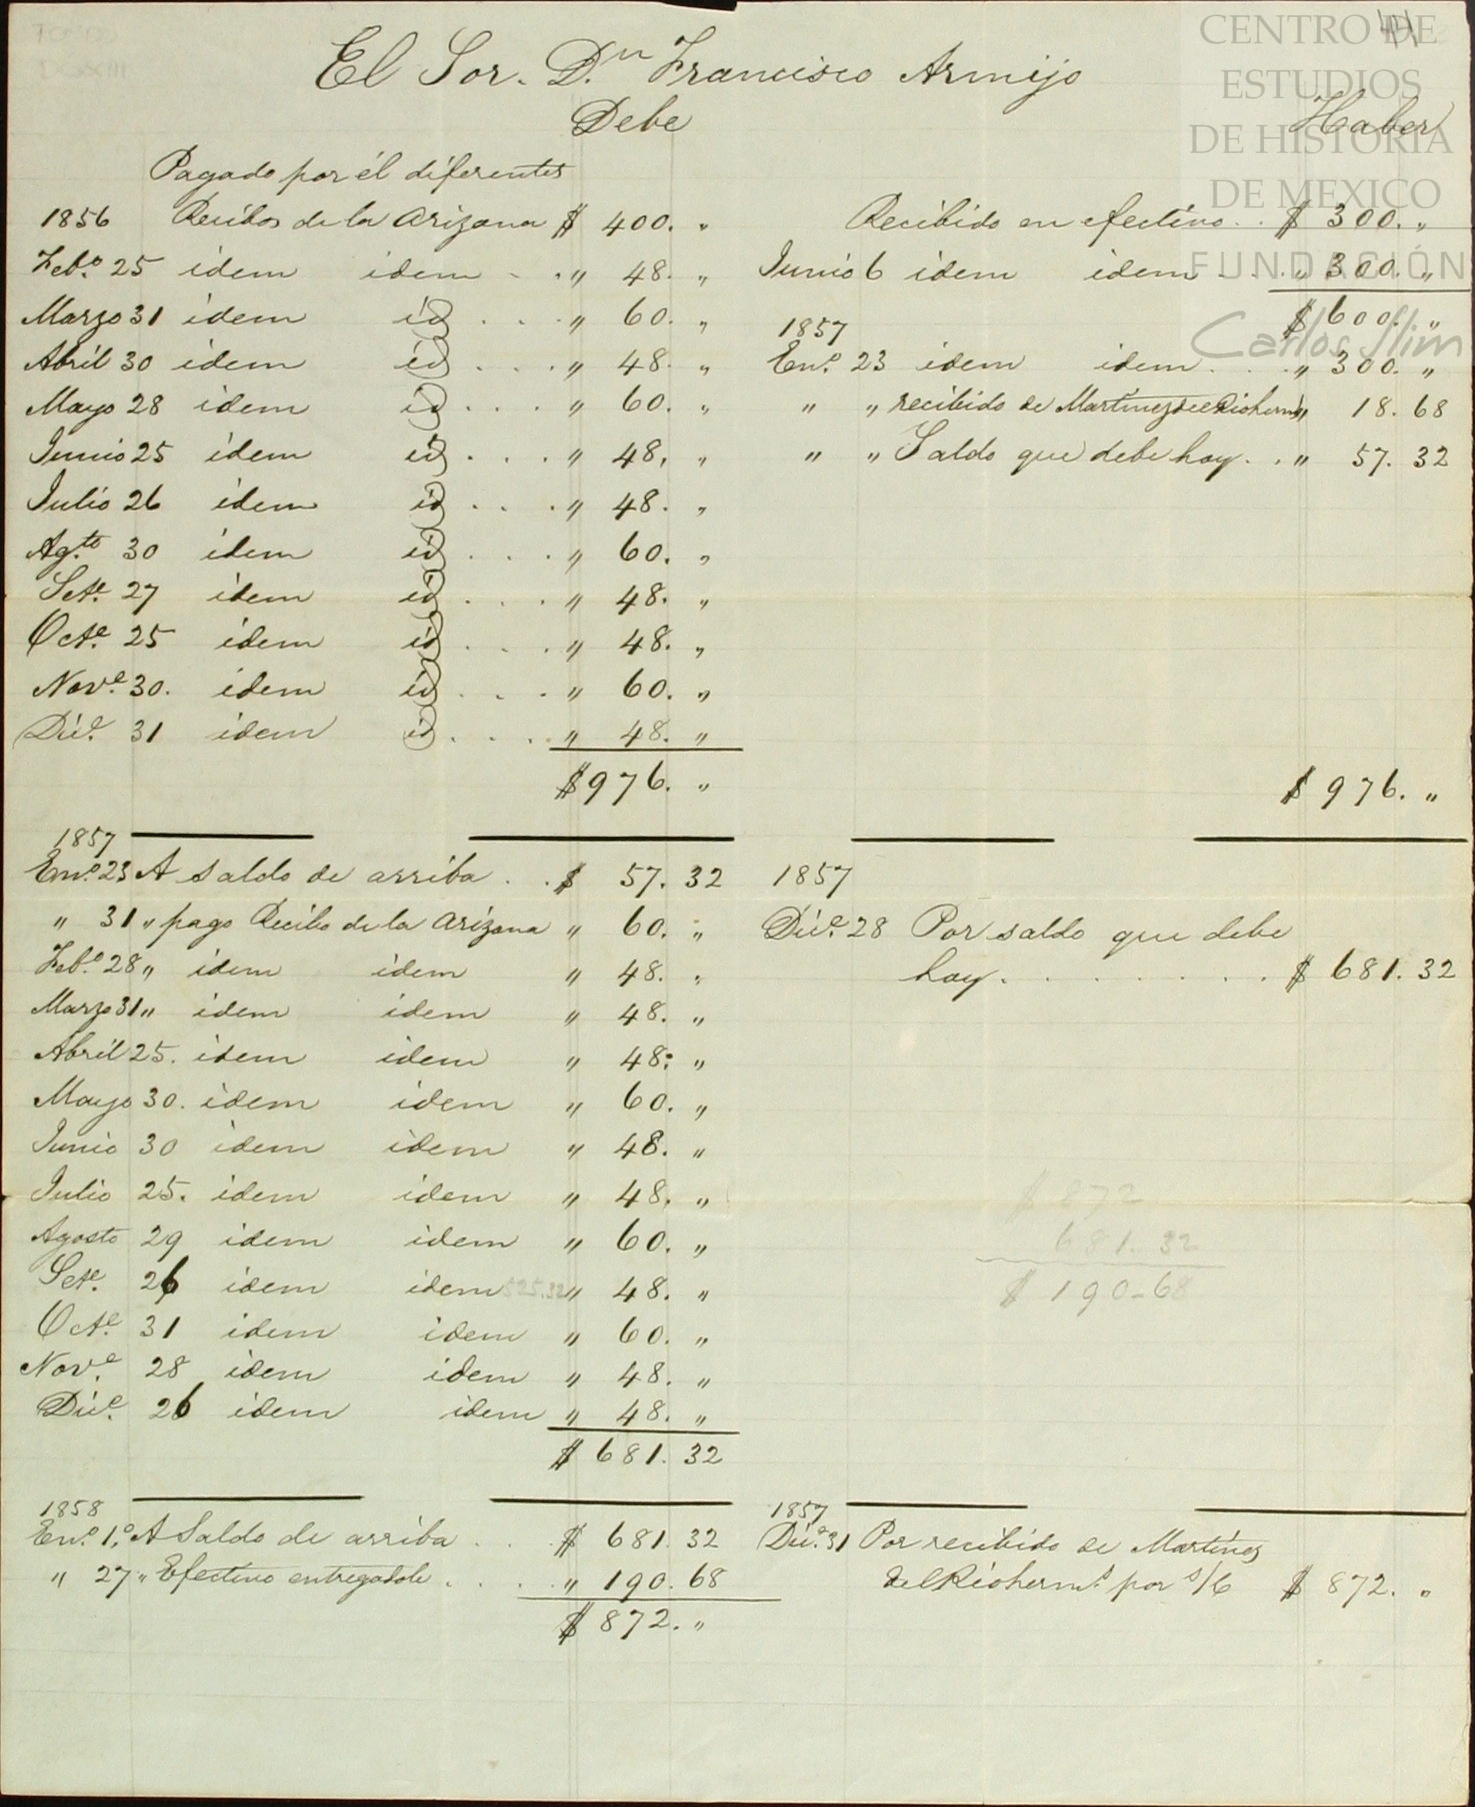 El Sor. D.n Francisco Armijo
Debe
Haber
Pagado por él diferentes
1856 Recibos de la Arizona $ 400. „
Recibido en efectivo . . $ 300. „
Feb.o 25 idem idem . . „ 48. „
Junio 6 idem idem . . . „ 300. „
$ 600. „
Marzo 31 idem id . . . „ 60. „
1857
Abril 30 idem id . . . „ 48. „
En.o 23 idem idem . . . „ 300. „
Mayo 28 idem id . . . „ 60. „
„ „ recibido de Martinez del Rio herms „ 18. 68
Junio 25 idem id . . . „ 48. „
„ „ Saldo que debe hoy . . „ 57. 32
Julio 26 idem id . . . „ 48. „
Ag.to 30 idem id . . . „ 60. „
Set.e 27 idem id . . . „ 48. „
Oct.e 25 idem id . . . „ 48. „
Nov.e 30. idem id . . . „ 60. „
Dic.e 31 idem id . . . „ 48. „
$ 976. „
$ 976. „
1857
En.o 23 A saldo de arriba . . $ 57. 32
1857
„ 31 „ pago Recibo de la Arizona „ 60. „
Dic.e 28 Por saldo que debe
Feb.o 28 „ idem idem „ 48. „
hoy . . . . . . . $ 681. 32
Marzo 31 „ idem idem „ 48. „
Abril 25. idem idem „ 48. „
Mayo 30. idem idem „ 60. „
Junio 30 idem idem „ 48. „
Julio 25. idem idem „ 48. „
$ 872
Agosto 29 idem idem „ 60. „
681. 32
Set.e 26 idem idem 525.32 „ 48. „
$ 190-68
Oct.e 31 idem idem „ 60. „
Nov.e 28 idem idem „ 48. „
Dic.e 26 idem idem „ 48. „
$ 681. 32
1858
En.o 1.o A Saldo de arriba . . . $ 681. 32
1857
Dic.e 31 Por recibido de Martinez
„ 27 „ Efectivo entregadole . . . . „ 190. 68
del Rio herm.s por s/c $ 872. „
$ 872. „
CENTRO DE
ESTUDIOS
DE HISTORIA
DE MEXICO
FUNDACIÓN
Carlos Slim